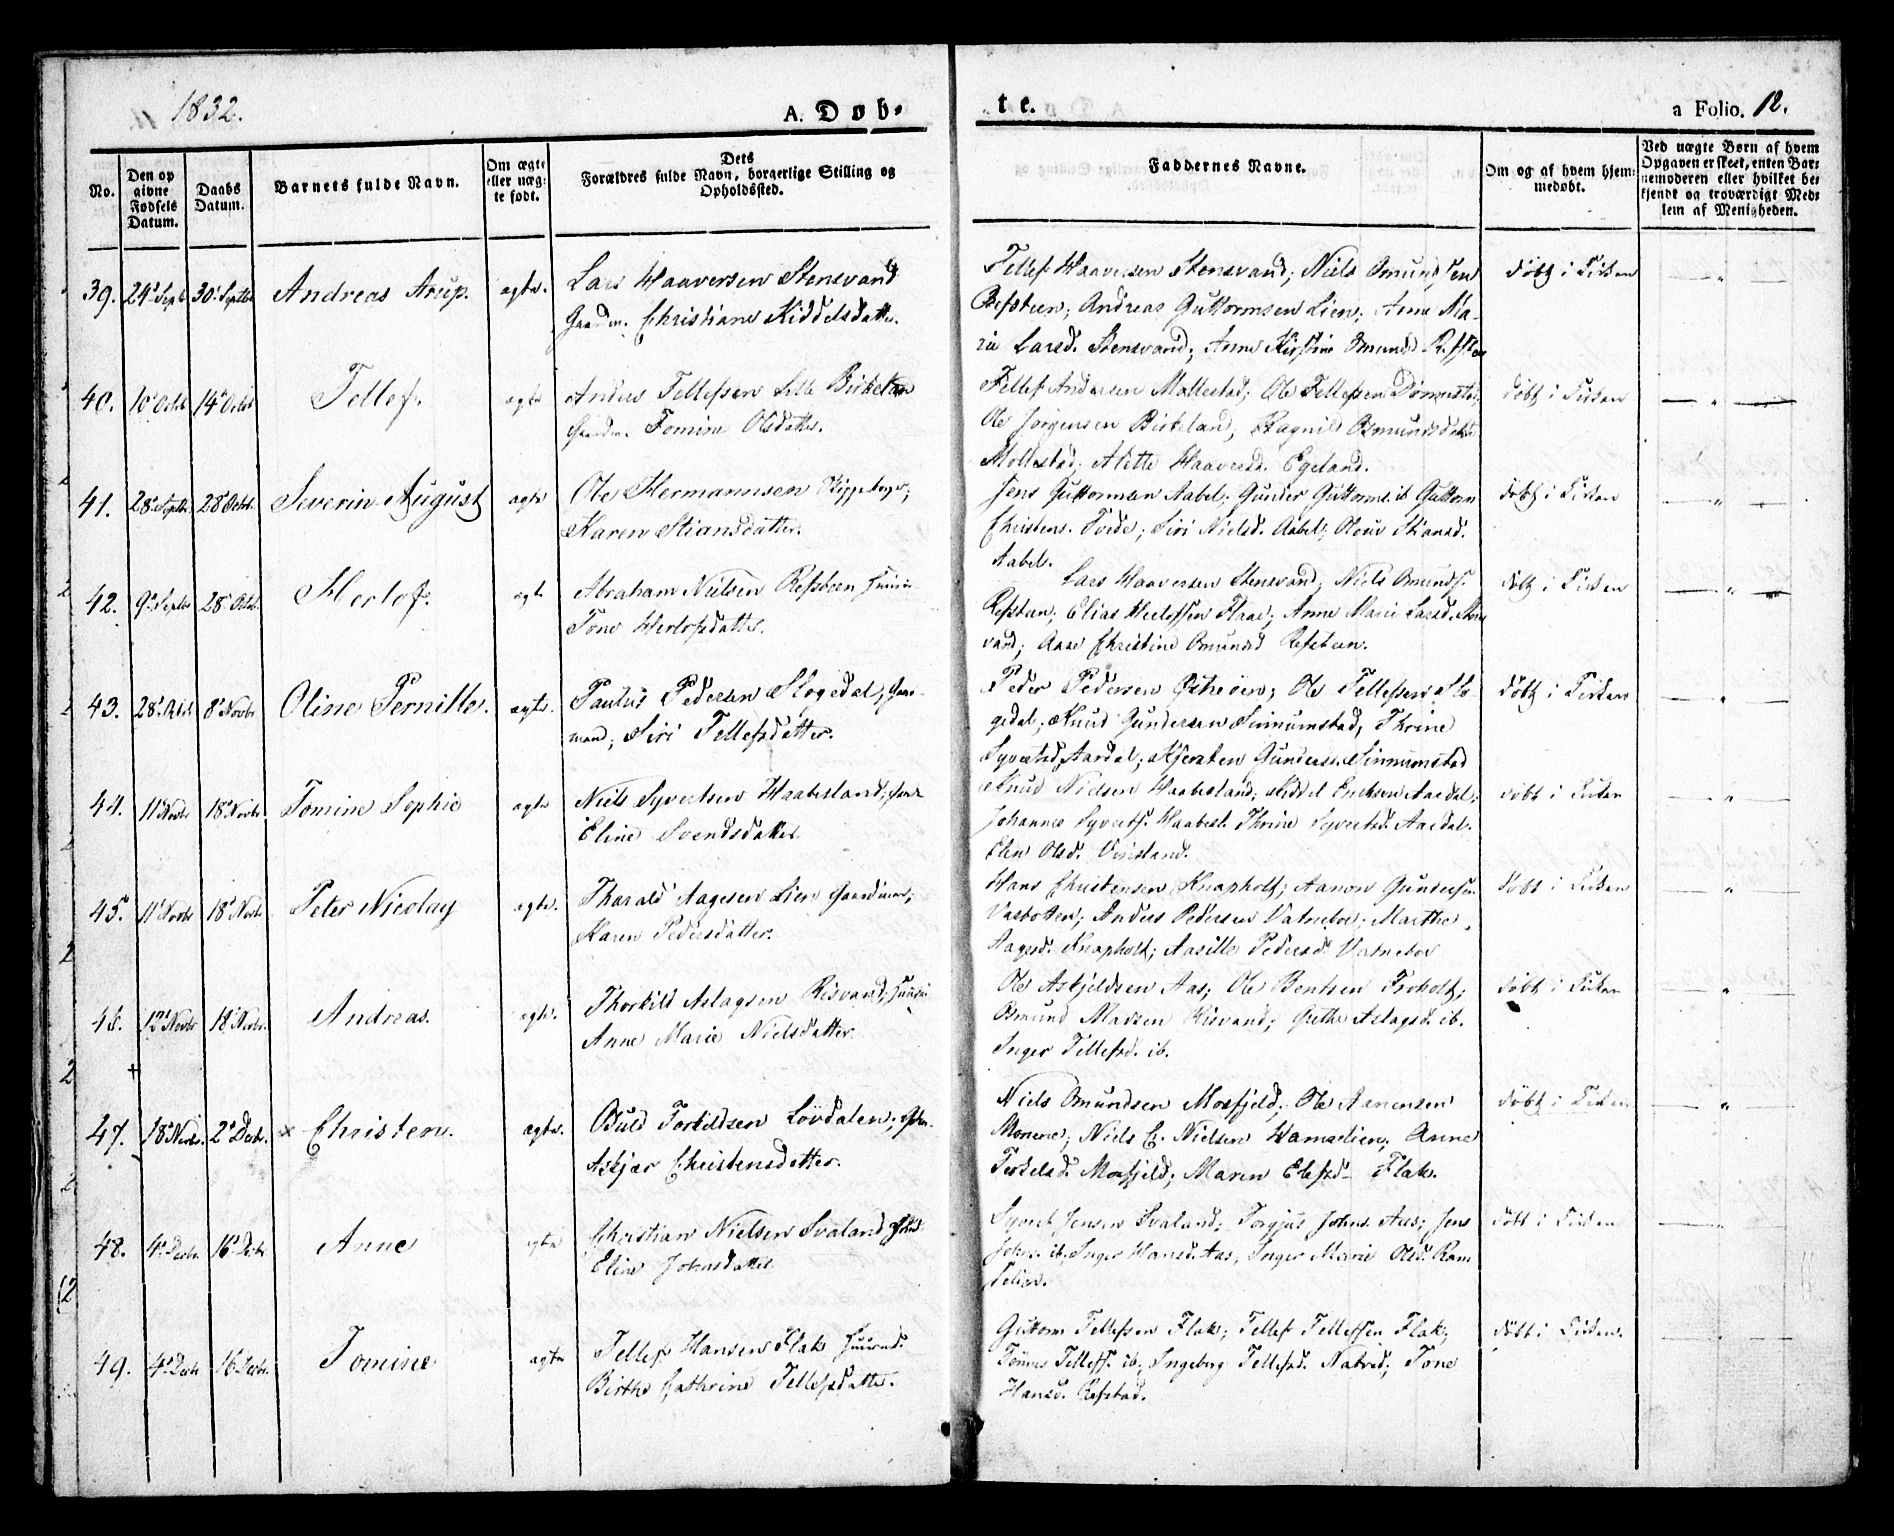 1832.
A. Døb-
te.
a Folio. 12.
No.
Den op
givne
Fødsels
Datum.
Daabs
Datum.
Barnets fulde Navn.
Om ægte
eller uæg-
te født.
Dets
Forældres fulde Navn, borgerlige Stilling og
Opholdssted.
Faddernes Navne.
Om og af hvem hjem-
medøbt.
Ved uægte Børn af hvem
Opgaven er skeet, enten Bar-
nemoderen eller hvilket be-
kjendt og troværdigt Med-
lem af Menigheden.
39. 24 Sept 30 Septbr Andreas Arup. ægte. Lars Haaversen Stensvand
Gaardm. Christiane Kiddelsdatter.
Tellef Haaversen Stensvand; Niels Omundsen
Refsteen; Andreas Guttormsen Lien; Anne Ma-
rie Larsd. Stensvand; Anne Kirstine Omundsd Refsteen
døbt i Kirken
40. 10 Octb 14 Octb Tellef. ægte Anders Tellefsen Lille Birkeland
Gaardm. Tomine Olsdatter.
Tellef Andersen Mollestad; Ole Tellefsen
Ole Jørgensen Birkeland; Ragnild Osmundsdatter
Mollestad; Alette Haaversd. Egeland.
døbt i Kirken
41. 28 Septbr. 28 Octbr. Severin August ægte Ole Hermannsen
Karen Stiansdatter.
Jens Guttormsen Aabel; Gunder Guttorms. ib Guttorm
Christens. Tvede; Siri Nielsd. Aabel; Stiansd.
Aabel.
døbt i Kirken
42. 9 Septbr 28 Octbr. Herlof. ægte Abraham Nielsen Refsteen
Tone Herlofsdatter.
Lars Haaversen Stensvand; Niels Omunds.
Refsteen; Elias Flaa; Anne Marie Larsd. Stens
vand; Aase Christine Omundsd Refsteen.
døbt i Kirken
43. 28 Octb. 8 Novbr Oline Pernille. ægte. Paulus Pedersen Slogedal, Gaar-
mand; Siri Tellefsdatter.
Peder Pedersen Ole Tellefsen Slo
gedal; Knud Gundersen Sinnumstad, Thrine
Syvertsd. Aardal; Kjersten Gunders. Sinnumstad
døbt i Kirken
44. 11 Novbr 18 Novbr Tomine Sophie ægte Niels Syvertsen Haabesland;
Eline Svendsdatter
Knud Nielsen Haabesland; Kiddel Ericksen Aardal;
Johannes Syverts. Haabesl. Thrine Syvertsd. Aardal.
Elen Olsd.
døbt i Kirken
45. 11 Novbr 18 Novbr Peter Nicolay ægte. Tharald Aagesen Lien Gaardmand;
Karen Pedersdatter.
Hans Christensen Knapholt; Aanon Gundersen
Vasbotten; Anders Pedersen Vatneboe; Marthe
Aagesd. Knapholt; Aasille Pedersd Vatneboe
døbt i Kirken
46. 13 Novbr 18 Novbr. Andreas. ægte. Thorkild Aslagsen Risvand;
Anne Marie Nielsdatter.
Ole Askjeldsen Aas; Ole Bentsen Froholt;
Osmund Madsen Risvand; Grethe Aslagsd. ib.
Inger Tellefsd. ib.
døbt i Kirken
47. 18 Novbr. 2 Decbr. × Christen. ægte. Ould Torkildsen Løvdalen;
Askjær Christensdatter.
Niels Omundsen Mosfjeld; Ole Aanensen
Monene; Niels C. Nielsen Hamrelien; Anne
Terkelsd. Mosfjeld; Maren Elefsd Flak.
døbt i Kirken
48. 4 Decbr. 16 Decbr Anne ægte Christian Nielsen Svaland
Eline Johnsdatter
Syvert Jensen Svaland; Torgjus Johns. Aas; Jens
Johns. ib, Inger Hansd. Aas, Inger Marie Olsd. Ram
selien.
døbt i Kirken
49. 4 Decbr 16 Decbr. Tomine ægte Tellef Hansen Flak Huusmd.
Birthe Cathrine Tellefsdatter.
Guttorm Tellefsen Flak; Tellef Tellefsen Flak;
Tønnes Tellefs. ib; Ingeborg Tellefsd. Natvid; Tone
Hansd. Refstad.
døbt i Kirken.